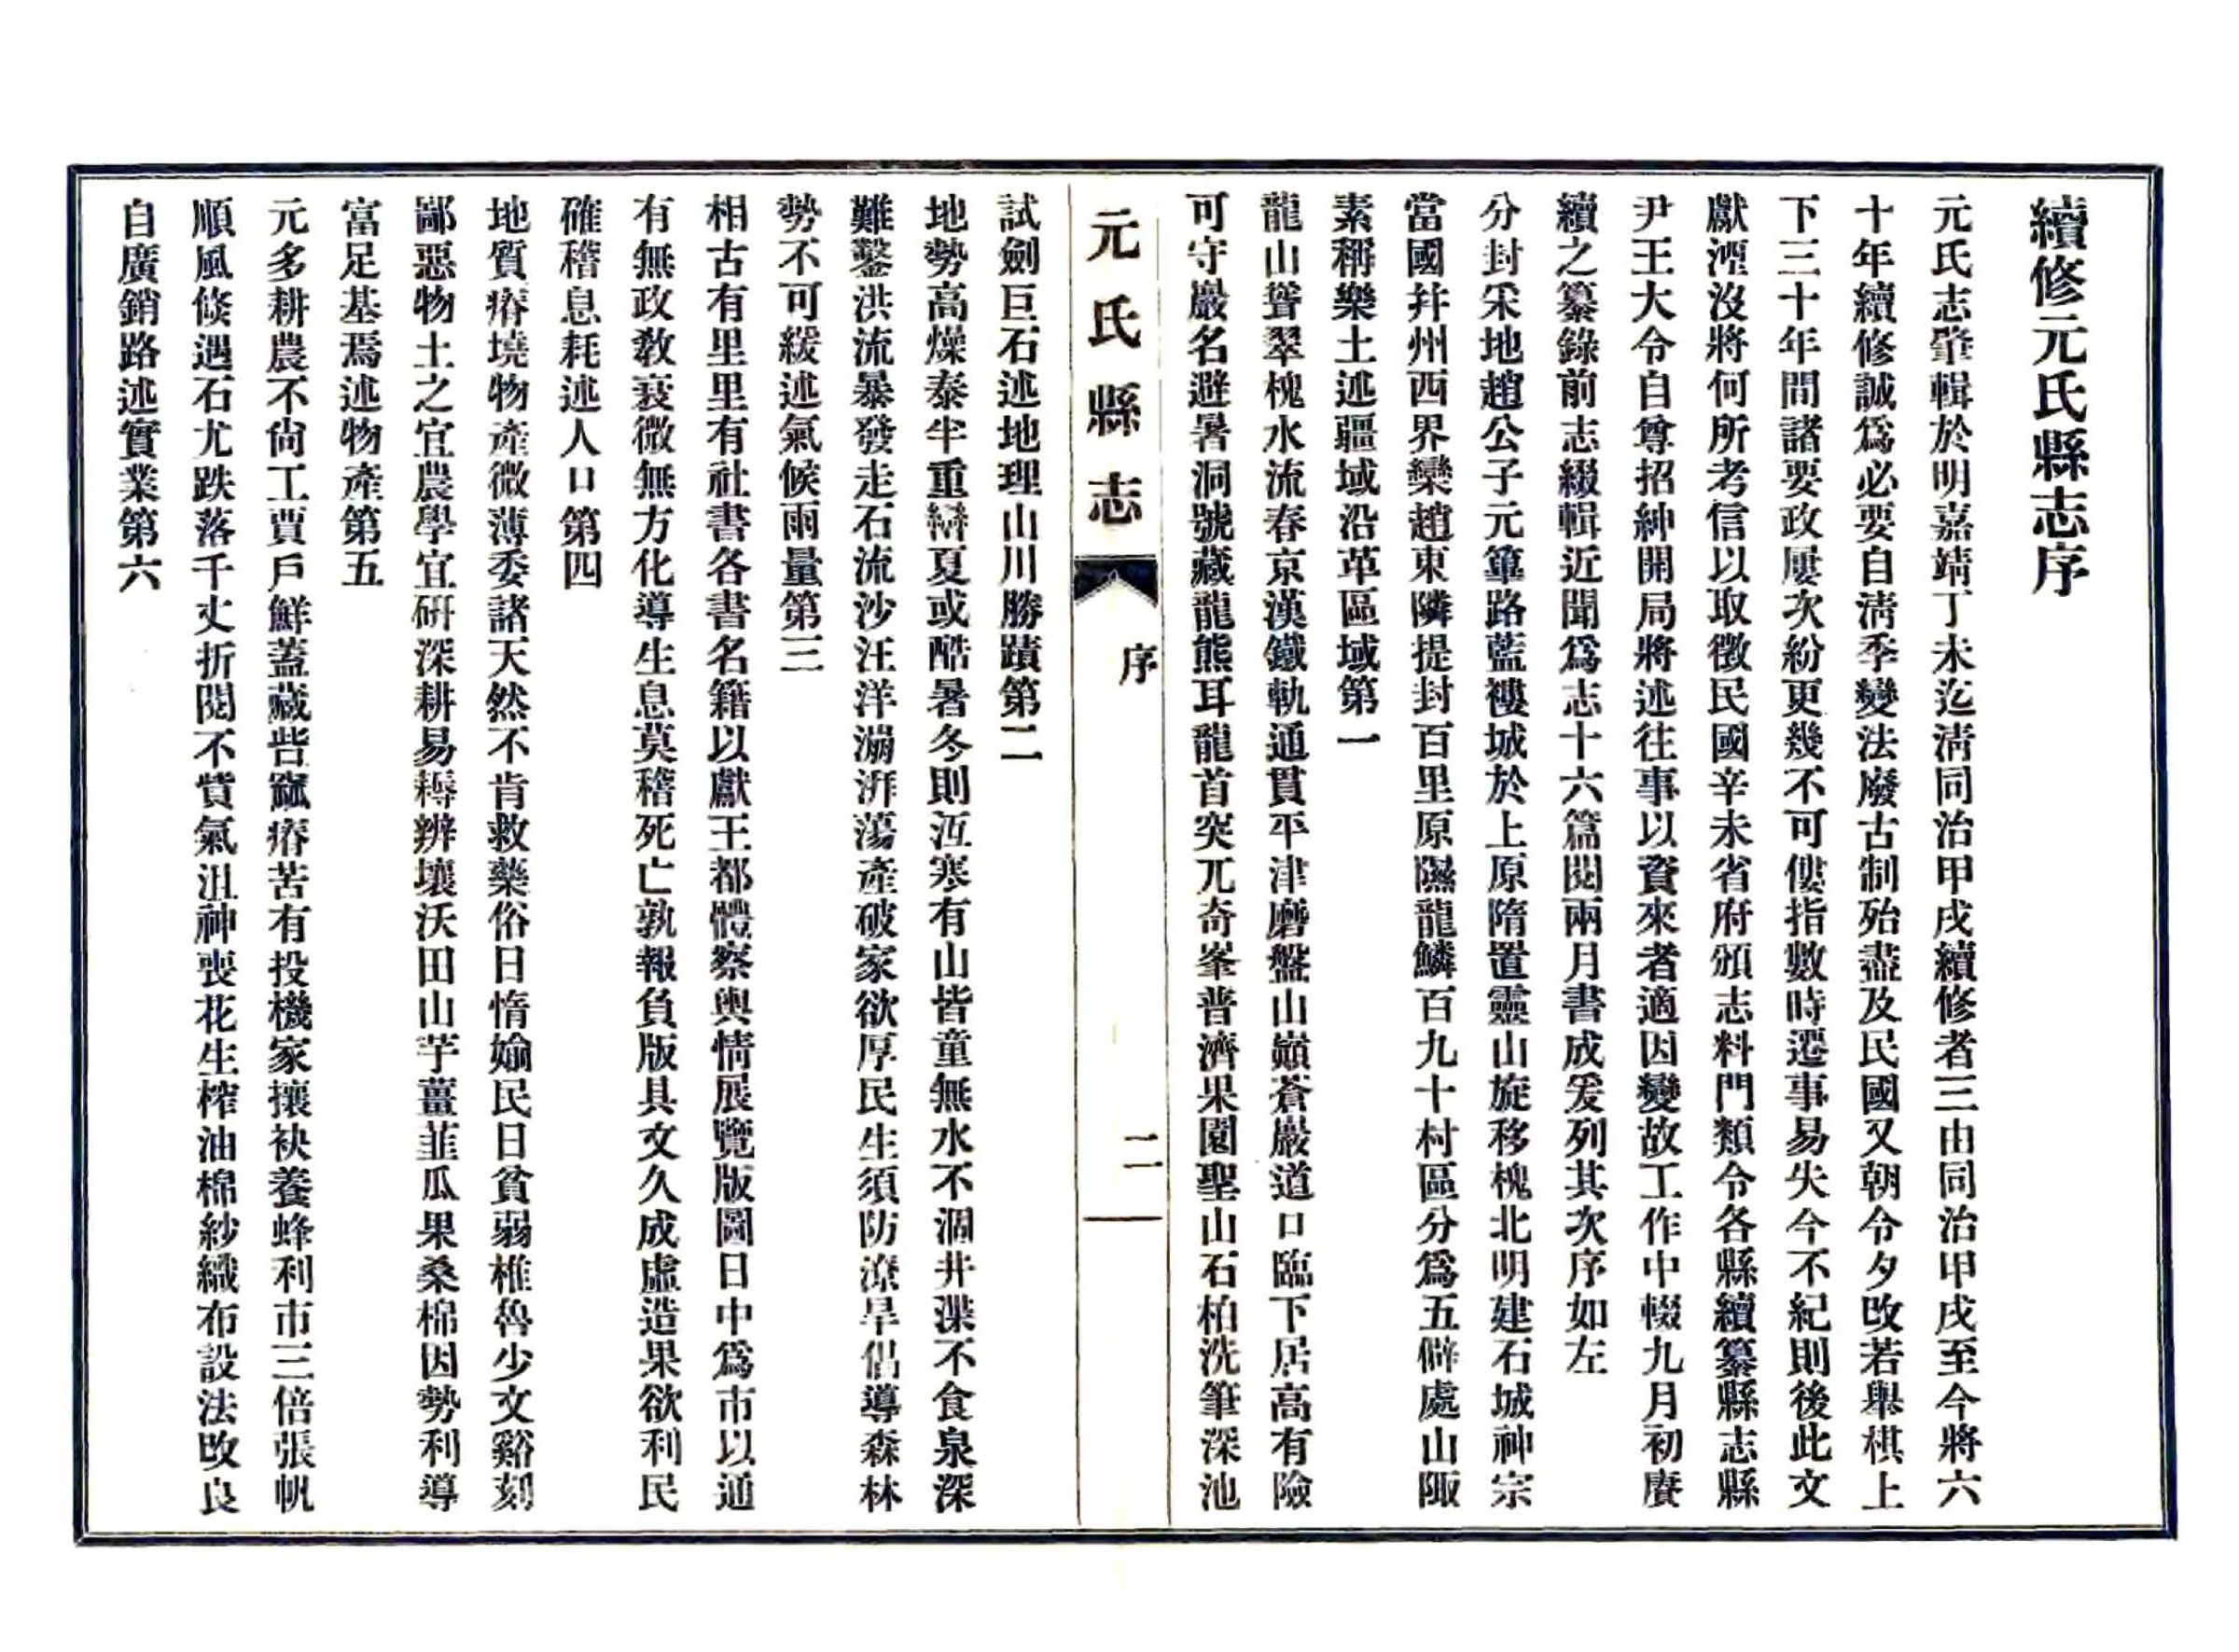 續修元氏縣志序
元氏志肇輯於明嘉靖丁未迄淸同治甲戌續修者三由同治甲戌至今將六
十年續修誠爲必要自淸季變法廢古制殆盡及民國又朝令夕改若舉棋上
下三十年間諸要政屢次紛更幾不可僂指數時遷事易失今不紀則後此文
獻湮沒將何所考信以取徵民國辛未省府頒志料門類令各縣續纂縣志縣
尹王大令自尊招紳開局將述往事以資來者適因變故工作中輟九月初賡
續之纂錄前志綴輯近聞爲志十六篇閱兩月書成爰列其次序如左
分封釆地趙公子元篳路藍褸城於上原隋置靈山旋移槐北明建石城神宗
當國幷州西界欒趙東隣提封百里原隰龍鱗百九十村區分爲五僻處山陬
素稱樂土述疆域沿革區域第一
龍山聳翠槐水流春京漢鐵軌通貫平津磨盤山巔蒼巖道口臨下居高有險
可守巖名避暑洞號藏龍熊耳龍首突兀奇峯普濟果園聖山石柏洗筆深池
元氏縣志 序 二
試劍巨石述地理山川勝蹟第二
地勢高燥泰半重巒夏或酷暑冬則沍寒有山皆童無水不涸井渫不食泉深
難鑿洪流暴發走石流沙汪洋漰湃蕩產破家欲厚民生須防潦旱倡導森林
勢不可緩述氣候雨量第三
相古有里里有社書各書名籍以獻王都體察輿情展覽版圖日中爲市以通
有無政敎衰微無方化導生息莫稽死亡孰報負版具文久成虛造果欲利民
確稽息耗述人口第四
地質瘠墝物產微薄委諸天然不肯救藥俗日惰媮民日貧弱椎魯少文谿刻
鄙惡物土之宜農學宜硏深耕易耨辨壤沃田山芋薑韮瓜果桑棉因勢利導
富足基焉述物產第五
元多耕農不尙工賈戶鮮蓋藏呰窳瘠苦有投機家攘袂養蜂利市三倍張帆
順風倏遇石尤跌落千丈折閱不貲氣沮神喪花生榨油棉紗織布設法改良
自廣銷路述實業第六